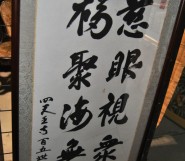 慈眼視衆
福聚海無
四天王寺百五世